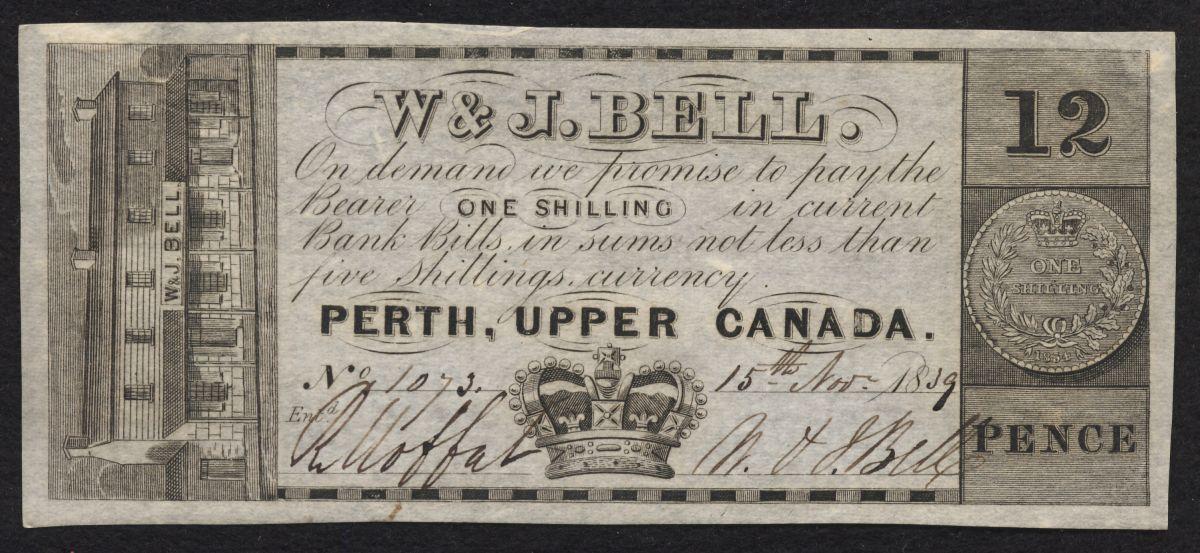 W & J. BELL.
On demand we promise to pay the
Bearer ONE SHILLING in current
Bank Bills, in sums not less than
five shillings, currency.
PERTH, UPPER CANADA.
No. 1073. 15th Novr 1839
Ent'd.
R Moffat W. & J. Bell
W & J. BELL.
12
ONE
SHILLING
1834
PENCE